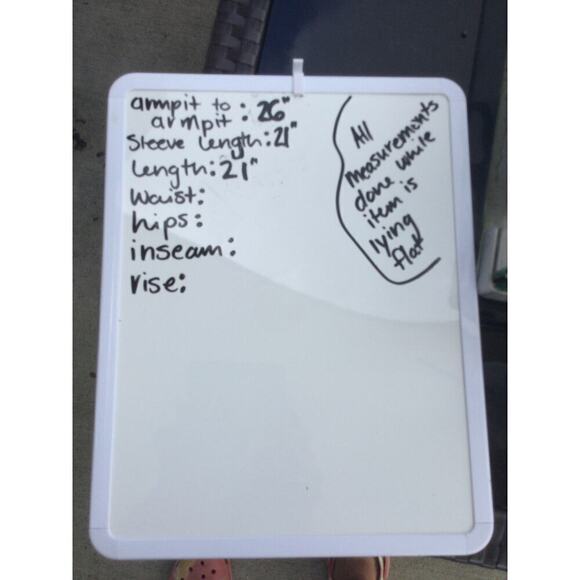 armpit to
armpit: 26"
Sleeve Length: 21"
Length: 21"
Waist:
hips:
inseam:
rise:
All
measurements
done while
item is
lying
flat